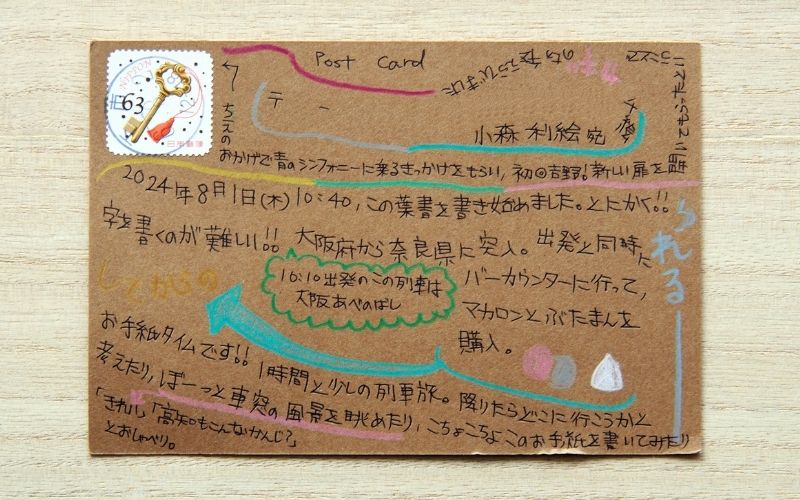 Post Card
NIPPON
63
日本郵便
〒 ー
小森利絵宛
ちえの
おかげで青のシンフォニーに乗るきっかけをもらい、初◎吉野!新しい扉を開
いてもらっています
2024年8月1日(木)10:40、この葉書を書き始めました。とにかく!!
字を書くのが難しい!! 大阪府から奈良県に突入。出発と同時に
バーカウンターに行って、
マカロンとぶたまんを
購入。
10:10出発のこの列車は
大阪あべのばし
してからの
られる
お手紙タイムです!! 1時間と少しの列車旅。降りたらどこに行こうかと
考えたり、ぼーっと車窓の風景を眺めたり、こちょこちょこのお手紙を書いてみたり
「きれい」「高知もこんなかんじ?」
とおしゃべり。